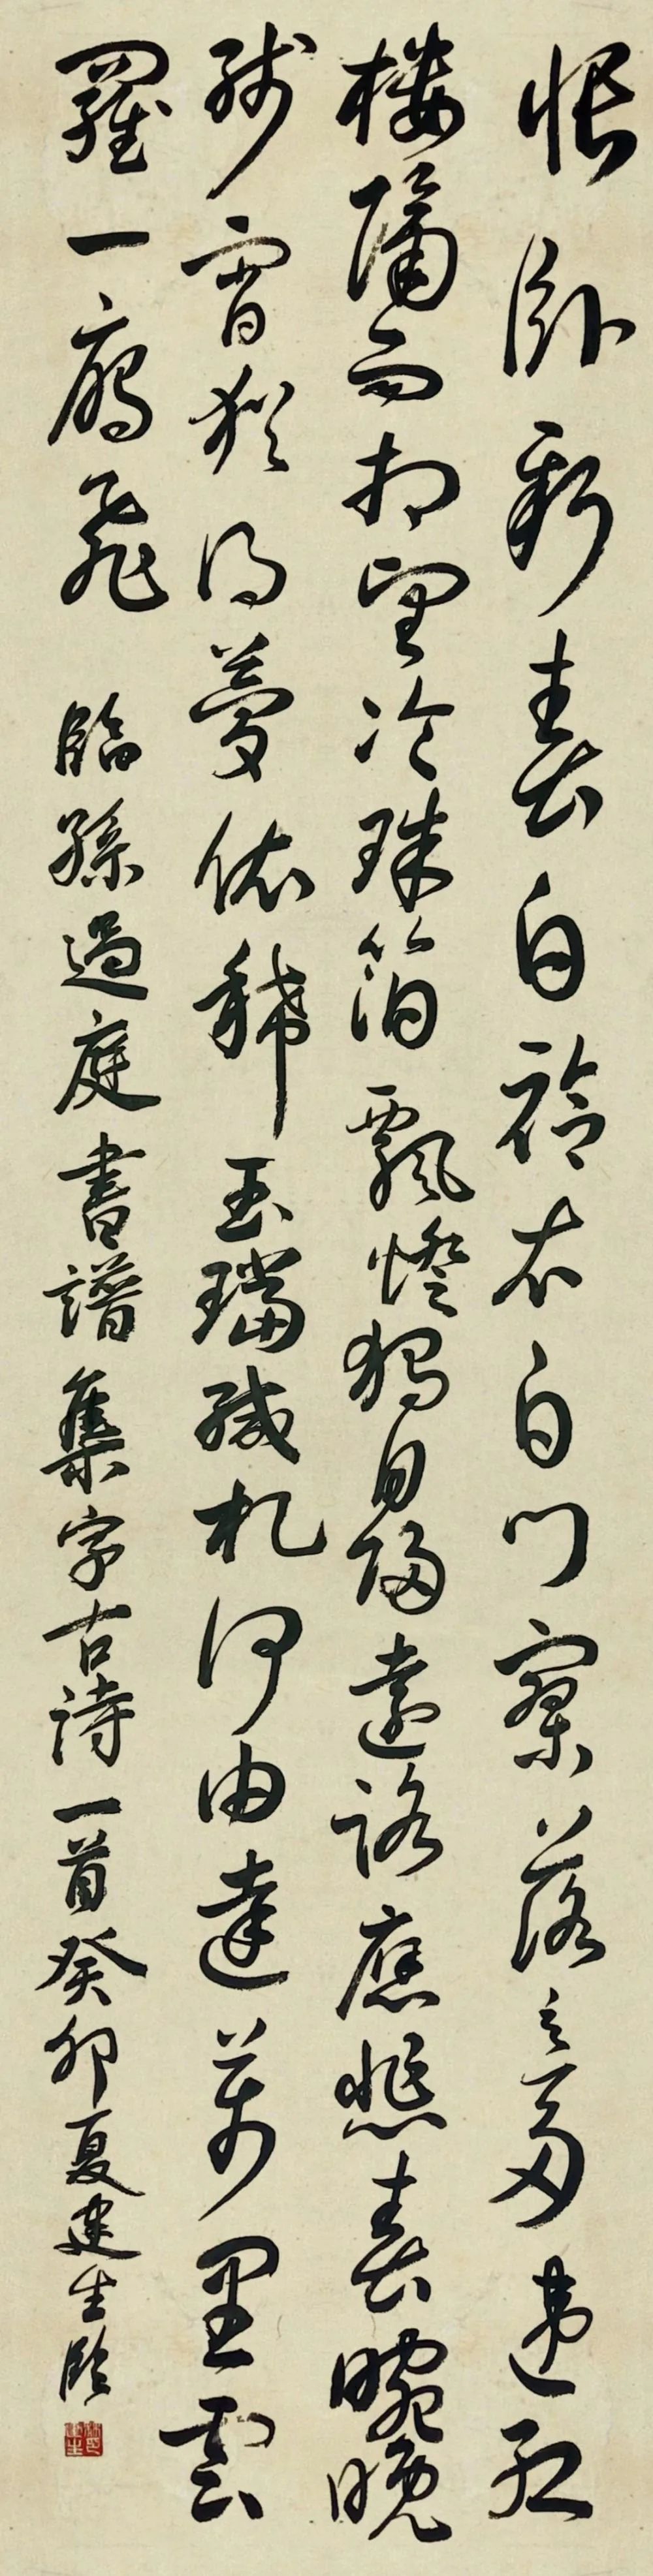 悵臥新春白袷衣白門寥落意多違紅
樓隔雨相望冷珠箔飄燈獨自歸遠路應悲春晼晚
殘宵猶得夢依稀玉璫緘札何由達萬里雲
羅一鴈飛 臨孫過庭書譜集字古詩一首癸卯夏建生臨